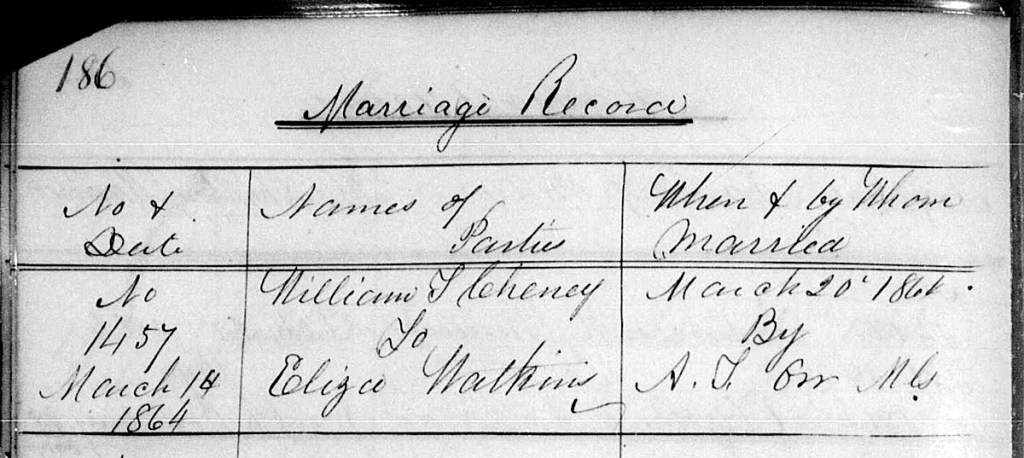 186
Marriage Record
No &
Date
Names of
Parties
When & by Whom
Married
No
1457
March 14
1864
William T Cheney
To
Eliza Watkins
March 20 1864.
By
A. T. Orr MG